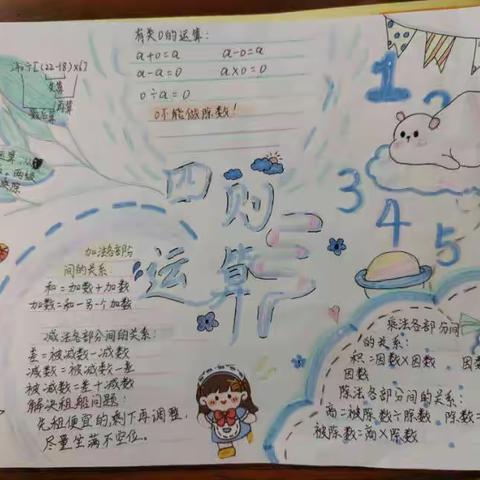 有关0的运算：
a+0=a a-0=a
a-a=0 a×0=0
0÷a=0
0不能做除数！
÷[(22-18)×6]
先算
再算
最后算
四则
运算
1
2
3
4
5
加法各部分
间的关系
和=加数+加数
加数=和-另一个加数
减法各部分间的关系：
差=被减数-减数
减数=被减数-差
被减数=差+减数
解决租船问题：
先租便宜的，剩下再调整，
尽量坐满不空位。
乘法各部分间
的关系：
积=因数×因数 因数
因数
除法各部分间的关系：
商=被除数÷除数 除数=
被除数=商×除数